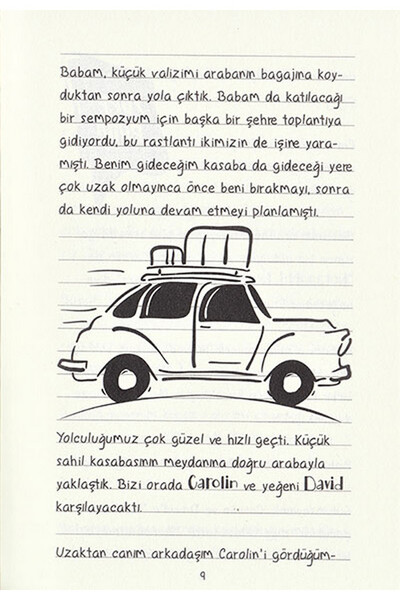 Babam, küçük valizimi arabanın bagajına koy-
duktan sonra yola çıktık. Babam da katılacağı
bir sempozyum için başka bir şehre toplantıya
gidiyordu, bu rastlantı ikimizin de işine yara-
mıştı. Benim gideceğim kasaba da gideceği yere
çok uzak olmayınca önce beni bırakmayı, sonra
da kendi yoluna devam etmeyi planlamıştı.
Yolculuğumuz çok güzel ve hızlı geçti. Küçük
sahil kasabasının meydanına doğru arabayla
yaklaştık. Bizi orada Carolin ve yeğeni David
karşılayacaktı.
Uzaktan canım arkadaşım Carolin'i gördüğüm-
9